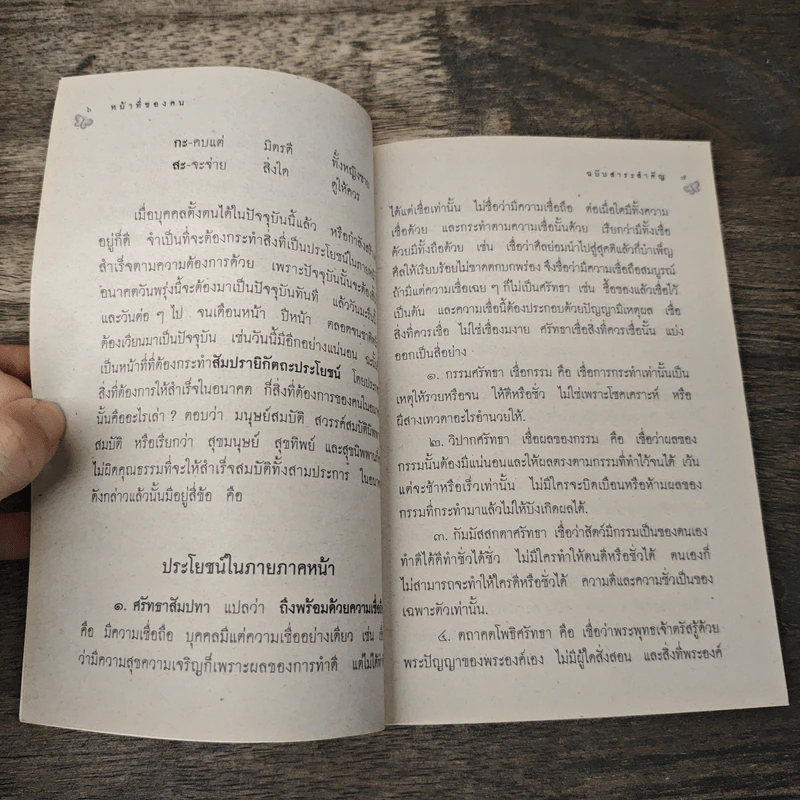 ๖ หน้าที่ของคน
กะ-คบแต่ มิตรดี ทั้งหญิงชาย
สะ-จะจ่าย สิ่งใด ดูให้ควร
เมื่อบุคคลตั้งตนได้ในปัจจุบันนี้แล้ว หรือกำลังสร้าง
อยู่ก็ดี จำเป็นที่จะต้องกระทำสิ่งที่เป็นประโยชน์ในภาย
สำเร็จตามความต้องการด้วย เพราะปัจจุบันนั้นจะต้อง
อนาคตวันพรุ่งนี้จะต้องมาเป็นปัจจุบันทันที แล้ววันมะรืน
และวันต่อ ๆ ไป จนเดือนหน้า ปีหน้า ตลอดจนชาติ
ต้องเวียนมาเป็นปัจจุบัน เช่นวันนี้มีอีกอย่างแน่นอน ฉะนั้น
เป็นหน้าที่ที่ต้องกระทำสัมปรายิกัตถะประโยชน์ โดย
สิ่งที่ต้องการให้สำเร็จในอนาคต ก็สิ่งที่ต้องการของคนใน
นั้นคืออะไรเล่า ? ตอบว่า มนุษย์สมบัติ สวรรค์สมบัติ
สมบัติ หรือเรียกว่า สุขมนุษย์ สุขทิพย์ และสุขนิพพาน
ไม่ผิดคุณธรรมที่จะให้สำเร็จสมบัติทั้งสามประการ ใน
ดังกล่าวแล้วนั้นมีอยู่สี่ข้อ คือ
ประโยชน์ในภายภาคหน้า
๑. ศรัทธาสัมปทา แปลว่า ถึงพร้อมด้วยความเชื่อ
คือ มีความเชื่อถือ บุคคลมีแต่ความเชื่ออย่างเดียว เช่น
ว่ามีความสุขความเจริญก็เพราะผลของการทำดี แต่ไม่ได้
ฉบับสาระสำคัญ ๗
ได้แต่เชื่อเท่านั้น ไม่ชื่อว่ามีความเชื่อถือ ต่อเมื่อใดมีทั้งความ
เชื่อด้วย และกระทำตามความเชื่อนั้นด้วย เรียกว่ามีทั้งเชื่อ
ด้วยมีทั้งถือด้วย เช่น เชื่อว่าศีลย่อมนำไปสู่สุคติแล้วก็บำเพ็ญ
ศีลให้เรียบร้อยไม่ขาดตกบกพร่อง จึงชื่อว่ามีความเชื่อถือสมบูรณ์
ถ้ามีแต่ความเชื่อเฉย ๆ ก็ไม่เป็นศรัทธา เช่น ซื้อของแล้วเชื่อไว้
เป็นต้น และความเชื่อนี้ต้องประกอบด้วยปัญญามีเหตุผล เชื่อ
สิ่งที่ควรเชื่อ ไม่ใช่เชื่องมงาย ศรัทธาเชื่อสิ่งที่ควรเชื่อนั้น แบ่ง
ออกเป็นสี่อย่าง
๑. กรรมศรัทธา เชื่อกรรม คือ เชื่อการกระทำเท่านั้นเป็น
เหตุให้รวยหรือจน ให้ดีหรือชั่ว ไม่ใช่เพราะโชคเคราะห์ หรือ
ผีสางเทวดาอะไรอำนวยให้.
๒. วิปากศรัทธา เชื่อผลของกรรม คือ เชื่อว่าผลของ
กรรมนั้นต้องมีแน่นอนและให้ผลตรงตามกรรมที่ทำไว้จนได้ เว้น
แต่จะช้าหรือเร็วเท่านั้น ไม่มีใครจะบิดเบือนหรือห้ามผลของ
กรรมที่กระทำมาแล้วไม่ให้บังเกิดผลได้.
๓. กัมมัสสกตาศรัทธา เชื่อว่าสัตว์มีกรรมเป็นของตนเอง
ทำดีได้ดีทำชั่วได้ชั่ว ไม่มีใครทำให้ตนดีหรือชั่วได้ ตนเองก็
ไม่สามารถจะทำให้ใครดีหรือชั่วได้ ความดีและความชั่วเป็นของ
เฉพาะตัวเท่านั้น.
๔. ตถาคตโพธิศรัทธา คือ เชื่อว่าพระพุทธเจ้าตรัสรู้ด้วย
พระปัญญาของพระองค์เอง ไม่มีผู้ใดสั่งสอน และสิ่งที่พระองค์